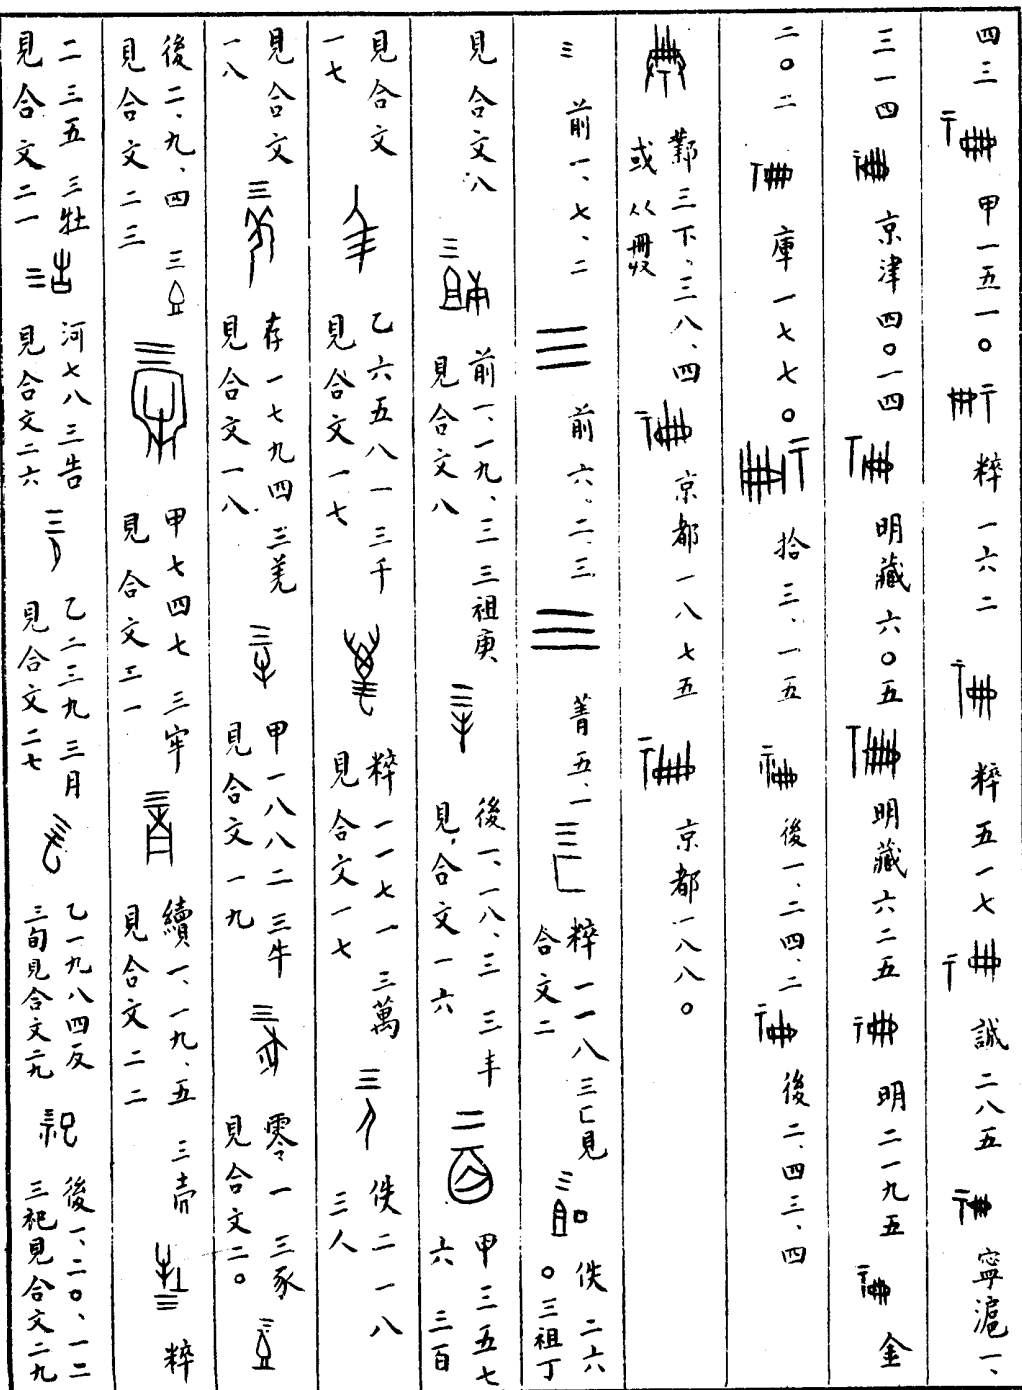 四三 甲一五一〇 粹一六二 粹五一七 誠二八五 寧滬一、
三一四 京津四〇一四 明藏六〇五 明藏六二五 明二一九五 金
二〇二 庫一七七〇 拾三、一五 後一、二四、二 後二、四三、四
鄴三下、三八、四 或从冊収 京都一八七五 京都一八八〇
三 前一、七、二 三 前六、二、三 三 菁五、一 粹一一八 三匚見合文二 佚二六〇 三祖丁
見合文八 前一、一九、三 三祖庚 見合文八 後一、一八、三 三丰 見合文一六 甲三五七六 三百
見合文一七 乙六五八一 三千 見合文一七 粹一一七一 三萬 見合文一七 佚二一八 三人
見合文一八 存一七九四 三羌 見合文一八 甲一八八二 三牛 見合文一九 零一 三豕 見合文二〇
後二、九、四 三 見合文二三 甲七四七 三牢 見合文二一 續一、一九、五 三 見合文二二 粹
二三五 三牡 見合文二一 河七八 三告 見合文二六 乙二三九 三月 見合文二七 乙一九八四反 三旬見合文二九 後一、二〇、一二 三祀見合文二九